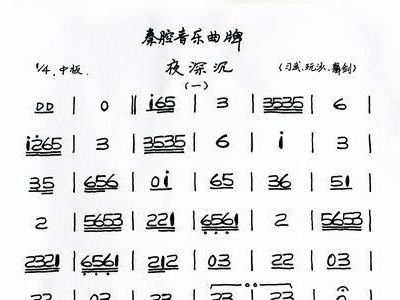 秦腔音乐曲牌
1/4. 中板. 夜深沉 (习武.玩沙.舞剑)
(一)
DD | 0 ‖ i65 | 3 | 3535 | 6 |
i265 | 3 | 3535 | 6 | i | 3 |
35 | 656 | 0i | 65 | 36 | 51 |
2 | 5653 | 221 | 6561 | 2 | 5653 |
2321 | 6561 | 212 | 03 | 22 | 03 |
22 | 03 | 22 | 23 | 23 | 0 |